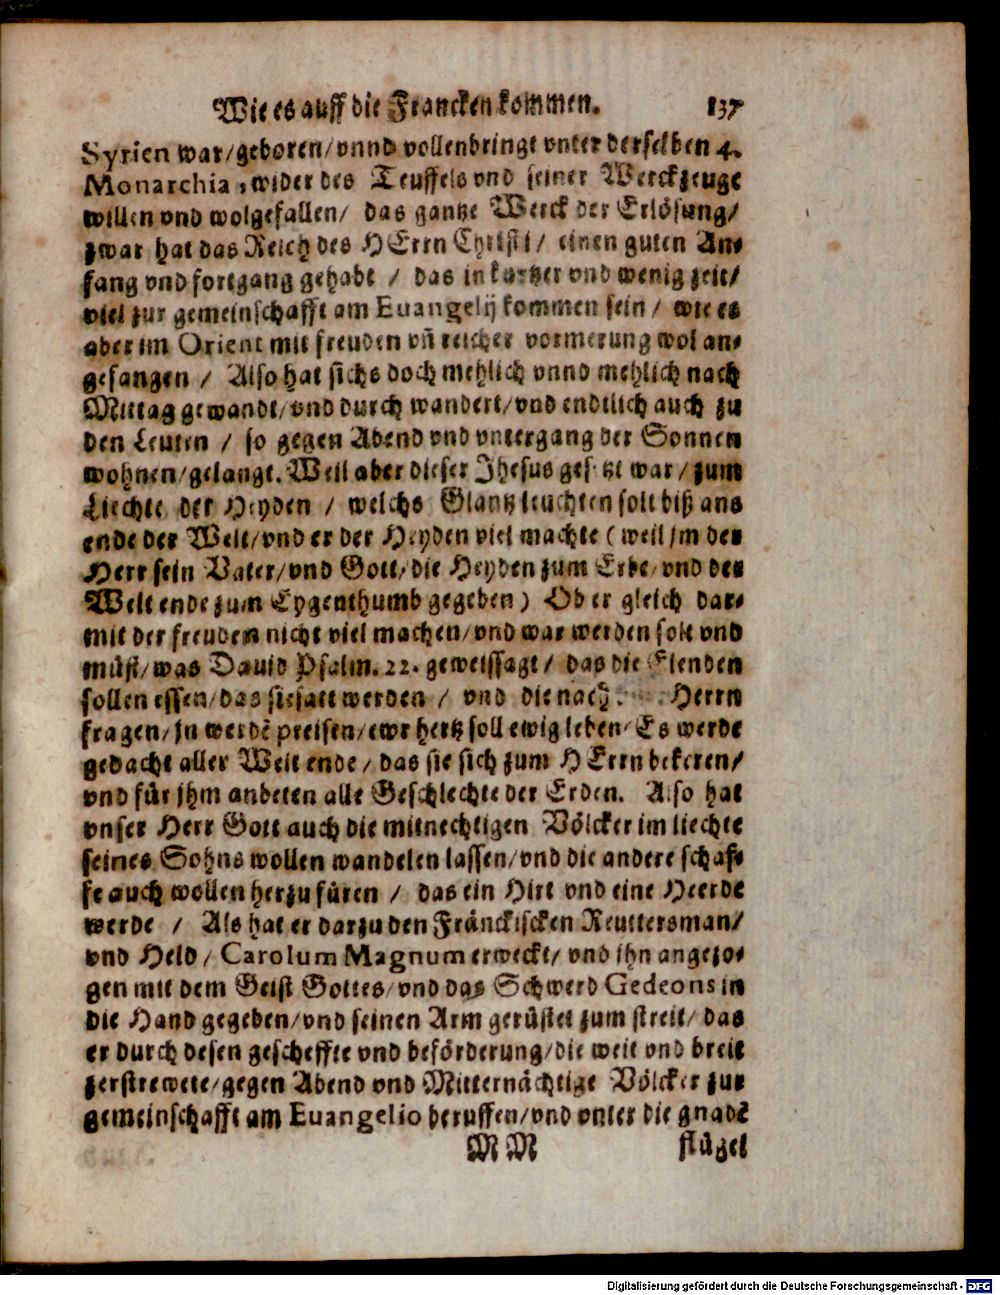 Wie es auff die Francken kommen. 137
Syrien war/geboren/vnnd vollenbringt vnter derselben 4.
Monarchia, wider des Teuffels vnd seiner Werckzeuge
willen vnd wolgefallen/ das gantze Werck der Erlösung/
zwar hat das Reich des HErrn Christi/ einen guten An-
fang vnd fortgang gehabt / das in kurtzer vnd wenig zeit/
viel zur gemeinschafft am Euangelij kommen sein / wie es
aber im Orient mit freuden vñ reicher vormerung wol an-
gefangen / Also hat sichs doch mehlich vnnd mehlich nach
Mittag gewandt/vnd durch wandert/vnd endtlich auch zu
den Leuten / so gegen Abend vnd vntergang der Sonnen
wohnen/gelangt. Weil aber dieser Jhesus gesetzt war/zum
Liechte der Heyden / welchs Glantz leuchten solt biß ans
ende der Welt/vnd er der Heyden viel machte (weil jm der
Herr sein Vater/vnd Gott/die Heyden zum Erbe/vnd der
Welt ende zum Eygenthumb gegeben) Ob er gleich dar-
mit der freuden nicht viel machen/vnd war werden solt vnd
müst/was Dauid Psalm.22. geweissagt/ das die Elenden
sollen essen/das sie satt werden / vnd die nach Herrn
fragen/jn werdē preisen/ewr hertz soll ewig leben/Es werde
gedacht aller Welt ende/das sie sich zum HErrn bekeren/
vnd für jhm anbeten alle Geschlechte der Erden. Also hat
vnser Herr Gott auch die mitnechtigen Völcker im liechte
seines Sohns wollen wandelen lassen/vnd die andere schaf-
fe auch wollen herzu füren / das ein Hirt vnd eine Heerde
werde / Als hat er darzu den Fränckischen Reuttersman/
vnd Held/ Carolum Magnum erweckt/ vnd jhn angezo-
gen mit dem Geist Gottes/vnd das Schwerd Gedeons in
die Hand gegeben/vnd seinen Arm gerüstet zum streit/das
er durch desen gescheffte vnd beförderung/die weit vnd breit
zerstrewete/gegen Abend vnd Mitternächtige Völcker zur
gemeinschafft am Euangelio beruffen/vnd vnter die gnadē
M M flügel
Digitalisierung gefördert durch die Deutsche Forschungsgemeinschaft - DFG